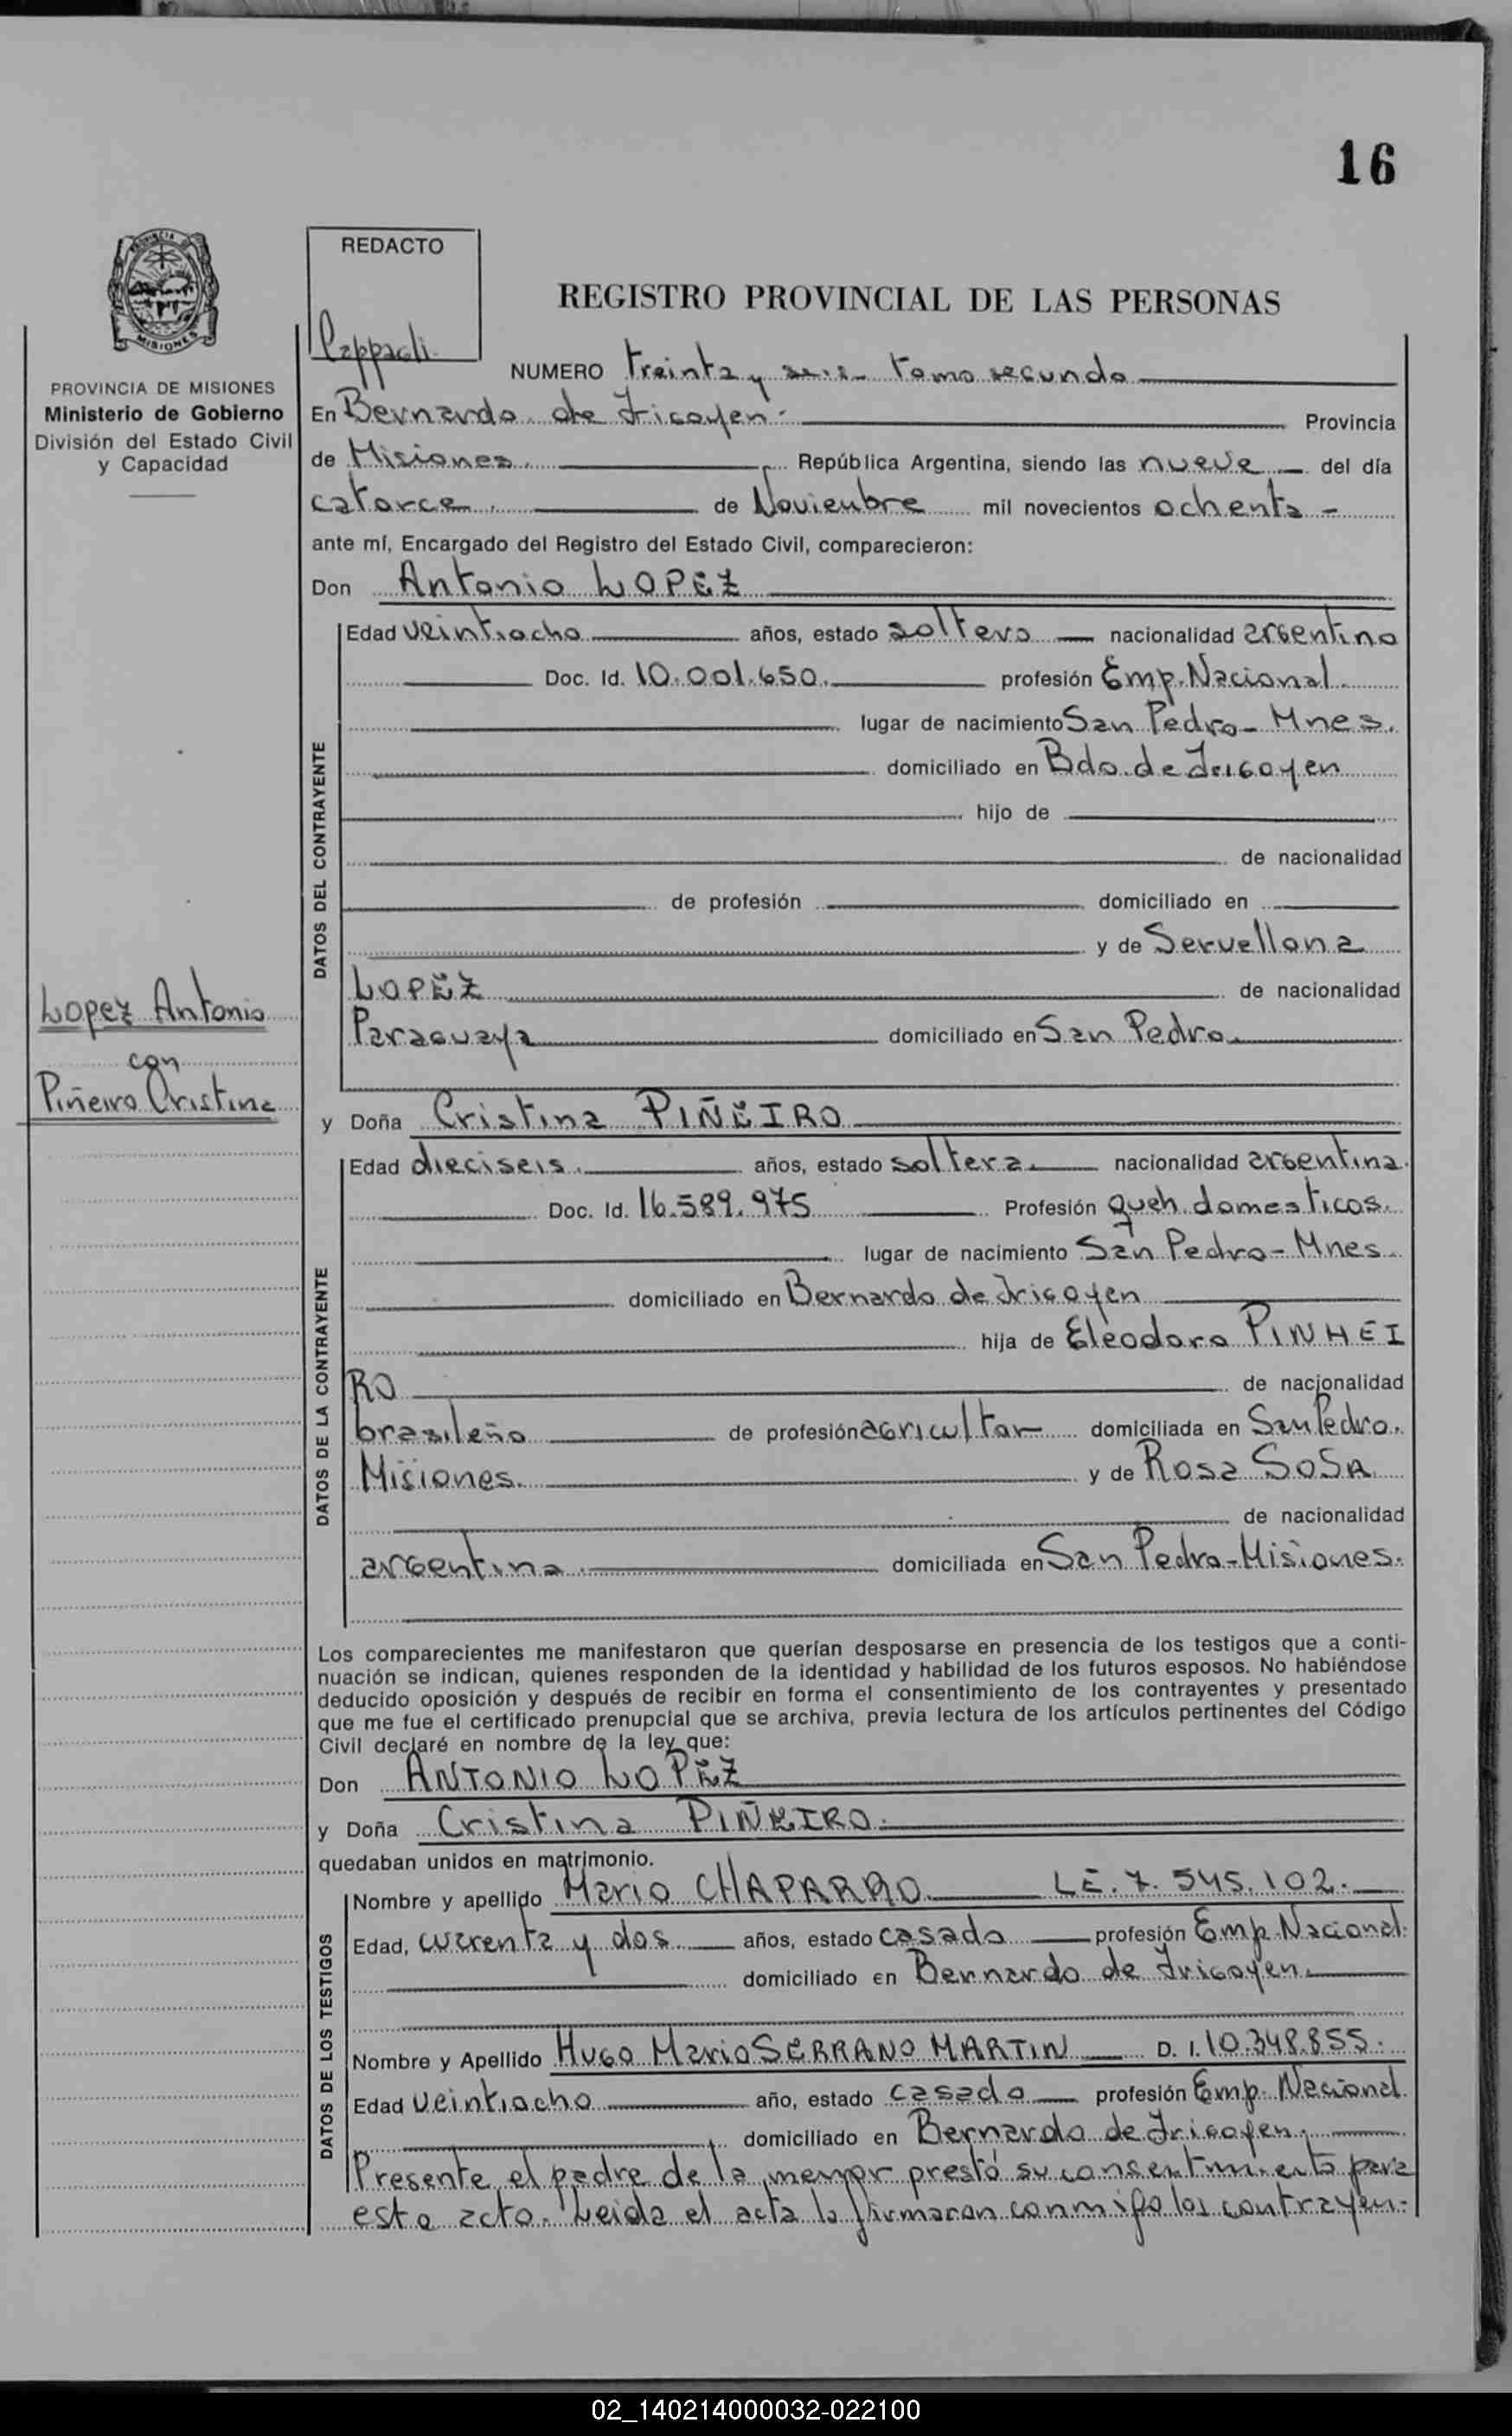 16
REDACTO
REGISTRO PROVINCIAL DE LAS PERSONAS
PROVINCIA DE MISIONES
Ministerio de Gobierno
División del Estado Civil
y Capacidad
NUMERO treinta y seis - tomo segundo
En Bernardo de Irigoyen - Provincia
de Misiones, República Argentina, siendo las nueve del día
catorce de Noviembre mil novecientos ochenta -
ante mí, Encargado del Registro del Estado Civil, comparecieron:
Don Antonio LOPEZ
DATOS DEL CONTRAYENTE
Edad veintiocho años, estado soltero nacionalidad argentino
Doc. Id. 10.001.650. profesión Emp. Nacional
lugar de nacimiento San Pedro - Mnes.
domiciliado en Bdo. de Irigoyen
hijo de
de nacionalidad
de profesión domiciliado en
y de Servellona
LOPEZ de nacionalidad
Paraguaya domiciliado en San Pedro
Lopez Antonio
con
Piñeiro Cristina
y Doña Cristina PIÑEIRO
DATOS DE LA CONTRAYENTE
Edad dieciseis. años, estado soltera nacionalidad argentina.
Doc. Id. 16.589.975 Profesión queh. domesticos.
lugar de nacimiento San Pedro - Mnes.
domiciliado en Bernardo de Irigoyen
hija de Eleodoro PINHEI
RO de nacionalidad
brasileño de profesión agricultor domiciliada en San Pedro.
Misiones. y de Rosa SOSA
de nacionalidad
argentina. domiciliada en San Pedro - Misiones.
Los comparecientes me manifestaron que querían desposarse en presencia de los testigos que a conti-
nuación se indican, quienes responden de la identidad y habilidad de los futuros esposos. No habiéndose
deducido oposición y después de recibir en forma el consentimiento de los contrayentes y presentado
que me fue el certificado prenupcial que se archiva, previa lectura de los artículos pertinentes del Código
Civil declaré en nombre de la ley que:
Don ANTONIO LOPEZ
y Doña Cristina PIÑEIRO.
quedaban unidos en matrimonio.
DATOS DE LOS TESTIGOS
Nombre y apellido Mario CHAPARRO LE. 7.545.102.
Edad, cuarenta y dos. años, estado casado profesión Emp. Nacional.
domiciliado en Bernardo de Irigoyen.
Nombre y Apellido Hugo Mario SERRANO MARTIN D. I. 10.348.855.
Edad veintiocho año, estado casado profesión Emp. Nacional.
domiciliado en Bernardo de Irigoyen.
Presente el padre de la menor prestó su consentimiento para
este acto. Leida el acta la firmaron conmigo los contrayen-
02_140214000032-022100